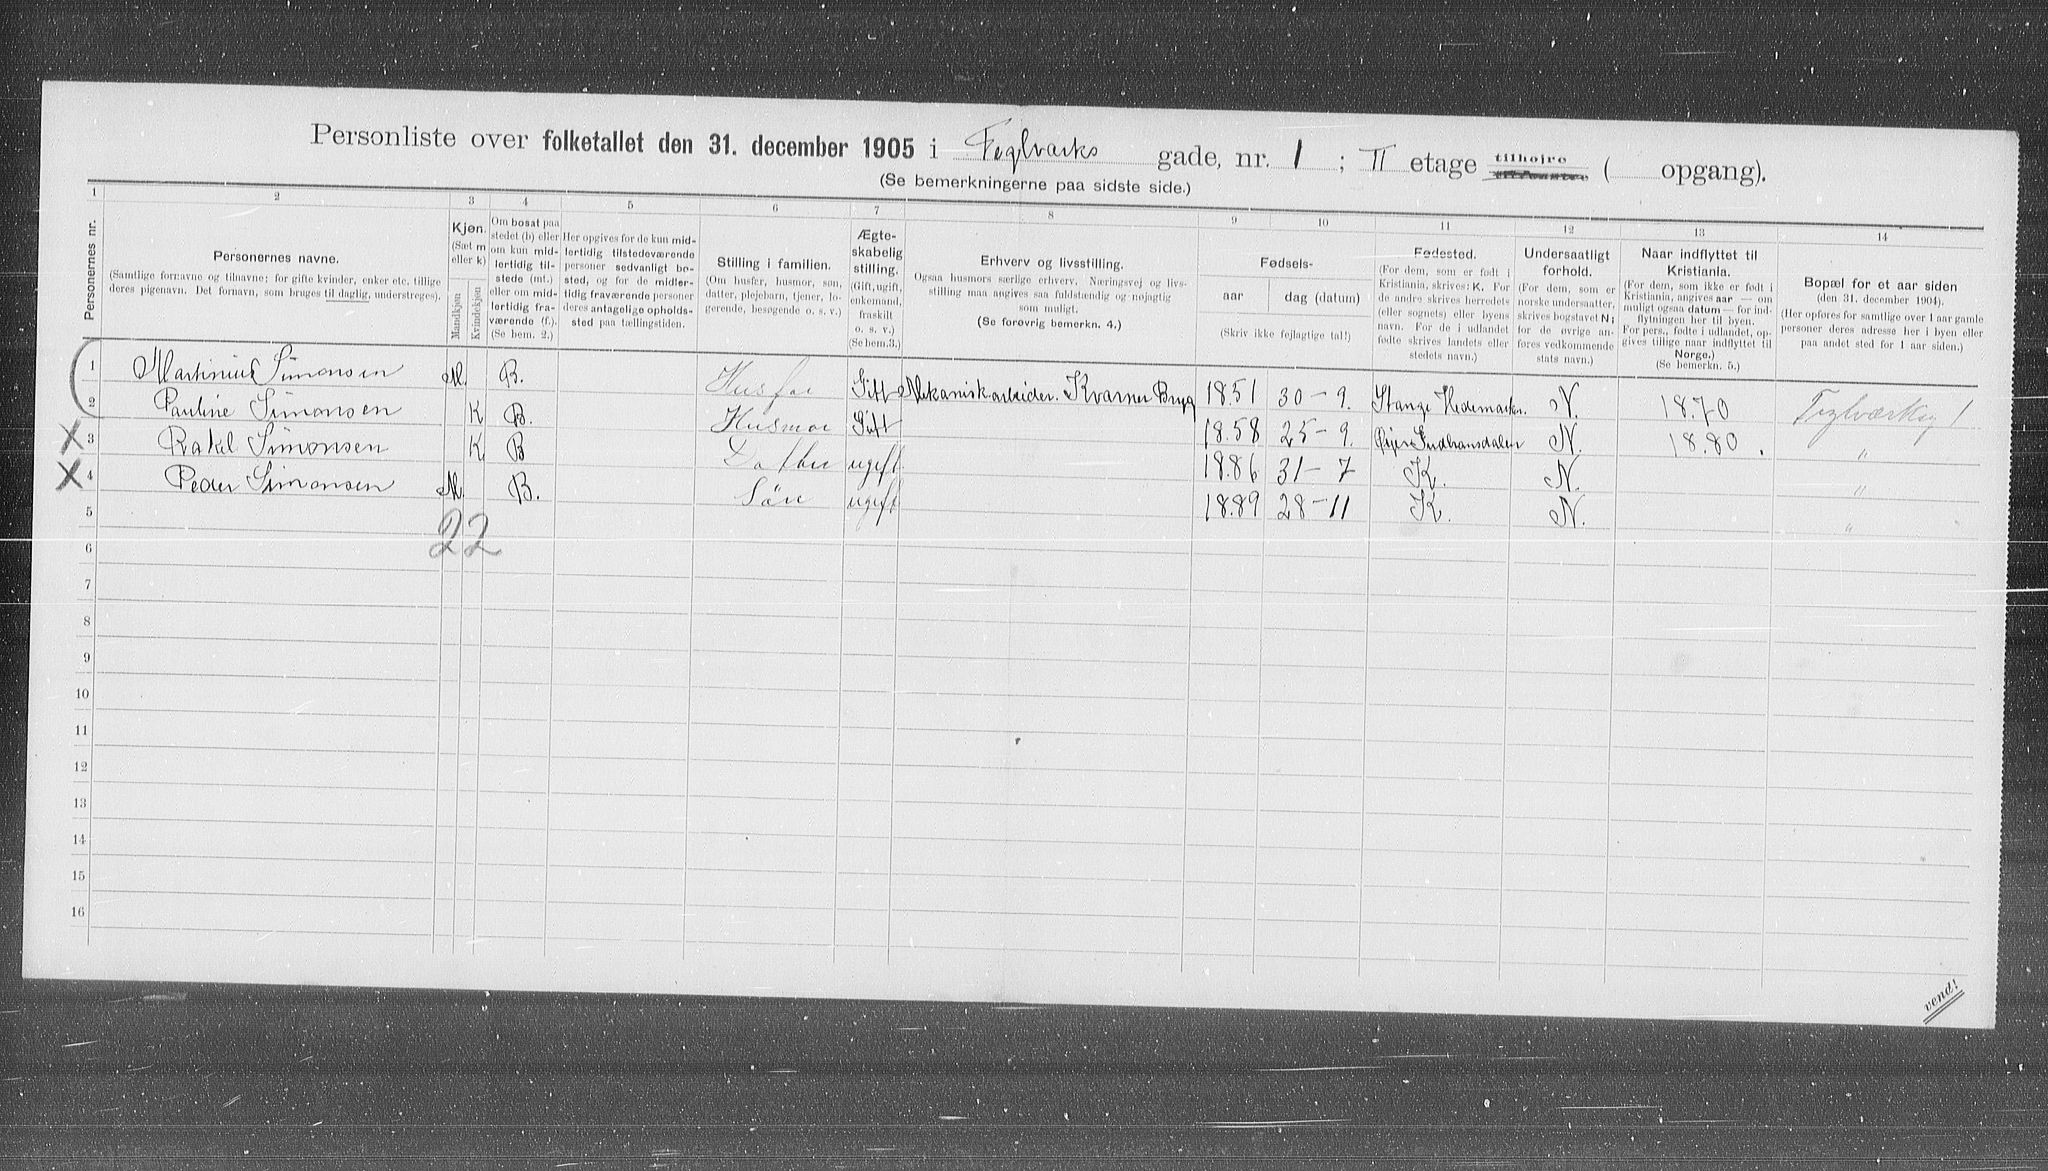 Personliste over folketallet den 31. december 1905 i Teglværks gade, nr. 1 ; II etage tilhøjre ( opgang).
(Se bemerkningerne paa sidste side.)
1 2 3 4 5 6 7 8 9 10 11 12 13 14
Personernes nr.
Personernes navne.
(Samtlige fornavne og tilnavne; for gifte kvinder, enker etc. tillige
deres pigenavn. Det fornavn, som bruges til daglig, understreges).
Kjøn.
(Sæt m
eller k)
Mandkjøn
Kvindekjøn
Om bosat paa
stedet (b) eller
om kun mid-
lertidig til-
stede (mt.)
eller om mid-
lertidig fra-
værende (f.).
(Se bem. 2.)
Her opgives for de kun mid-
lertidig tilstedeværende
personer sedvanligt bo-
sted, og for de midler-
tidig fraværende personer
deres antagelige opholds-
sted paa tællingstiden.
Stilling i familien.
(Om husfær, husmor, søn,
datter, plejebarn, tjener, lo-
gerende, besøgende o. s. v.)
Ægte-
skabelig
stilling.
(Gift, ugift,
enkemand,
fraskilt
o. s. v.)
(Se bem. 3.)
Erhverv og livsstilling.
Ogsaa husmors særlige erhverv. Næringsvej og livs-
stilling maa angives saa fuldstændig og nøjagtig
som muligt.
(Se forøvrig bemerkn. 4.)
Fødsels-
aar
dag (datum)
(Skriv ikke fejlagtige tal!)
Fødested.
(For dem, som er født i
Kristiania, skrives: K. For
de andre skrives herredets
(eller sognets) eller byens
navn. For de i udlandet
fødte skrives landets eller
stedets navn.)
Undersaatligt
forhold.
(For dem, som er
norske undersaatter,
skrives bogstavet N;
for de øvrige an-
føres vedkommende
stats navn.)
Naar indflyttet til
Kristiania.
(For dem, som ikke er født i
Kristiania, angives aar — om
muligt ogsaa datum — for ind-
flytningen her til byen.
For pers., fødte i udlandet, op-
gives tillige naar indflyttet til
Norge.)
(Se bemerkn. 5.)
Bopæl for et aar siden
(den 31. december 1904).
(Her opføres for samtlige over 1 aar gamle
personer deres adresse her i byen eller
paa andet sted for 1 aar siden.)
1 Martinius Simonsen M. B. Husfar Gift Mekaniskarbeider. Kværner Brug 1851 30-9. Stange Hedemarken. N. 1870 Teglværksg 1
2 Pauline Simonsen K B. Husmor Gift 1858 25-9. Øier Gudbransdalen N. 1880. "
3 Rakel Simonsen K B Datter ugift 1886 31-7 K. N. "
4 Peder Simonsen M. B. Søn ugift 1889 28-11 K. N. "
5
22
6
7
8
9
10
11
12
13
14
15
16
vend!